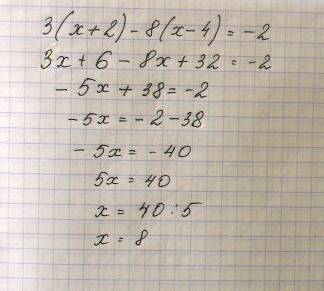 3(x+2)-8(x-4)=-2
3x+6-8x+32=-2
-5x+38=-2
-5x=-2-38
-5x=-40
5x=40
x=40:5
x=8